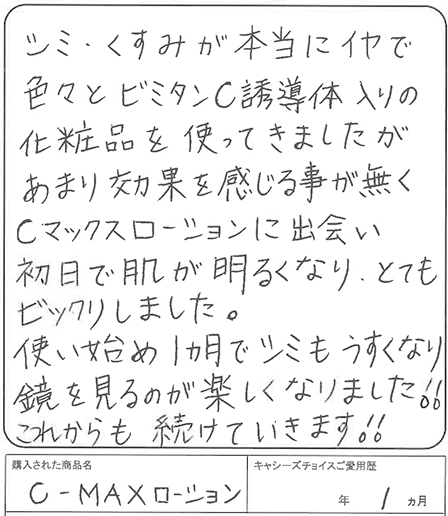 シミ・くすみが本当にイヤで
色々とビミタンC誘導体入りの
化粧品を使ってきましたが
あまり効果を感じる事が無く
Cマックスローションに出会い
初日で肌が明るくなり、とても
ビックリしました。
使い始め1カ月でシミもうすくなり
鏡を見るのが楽しくなりました!!
これからも続けていきます!!
購入された商品名
キャシーズチョイスご愛用歴
C-MAXローション
年 1 ヵ月